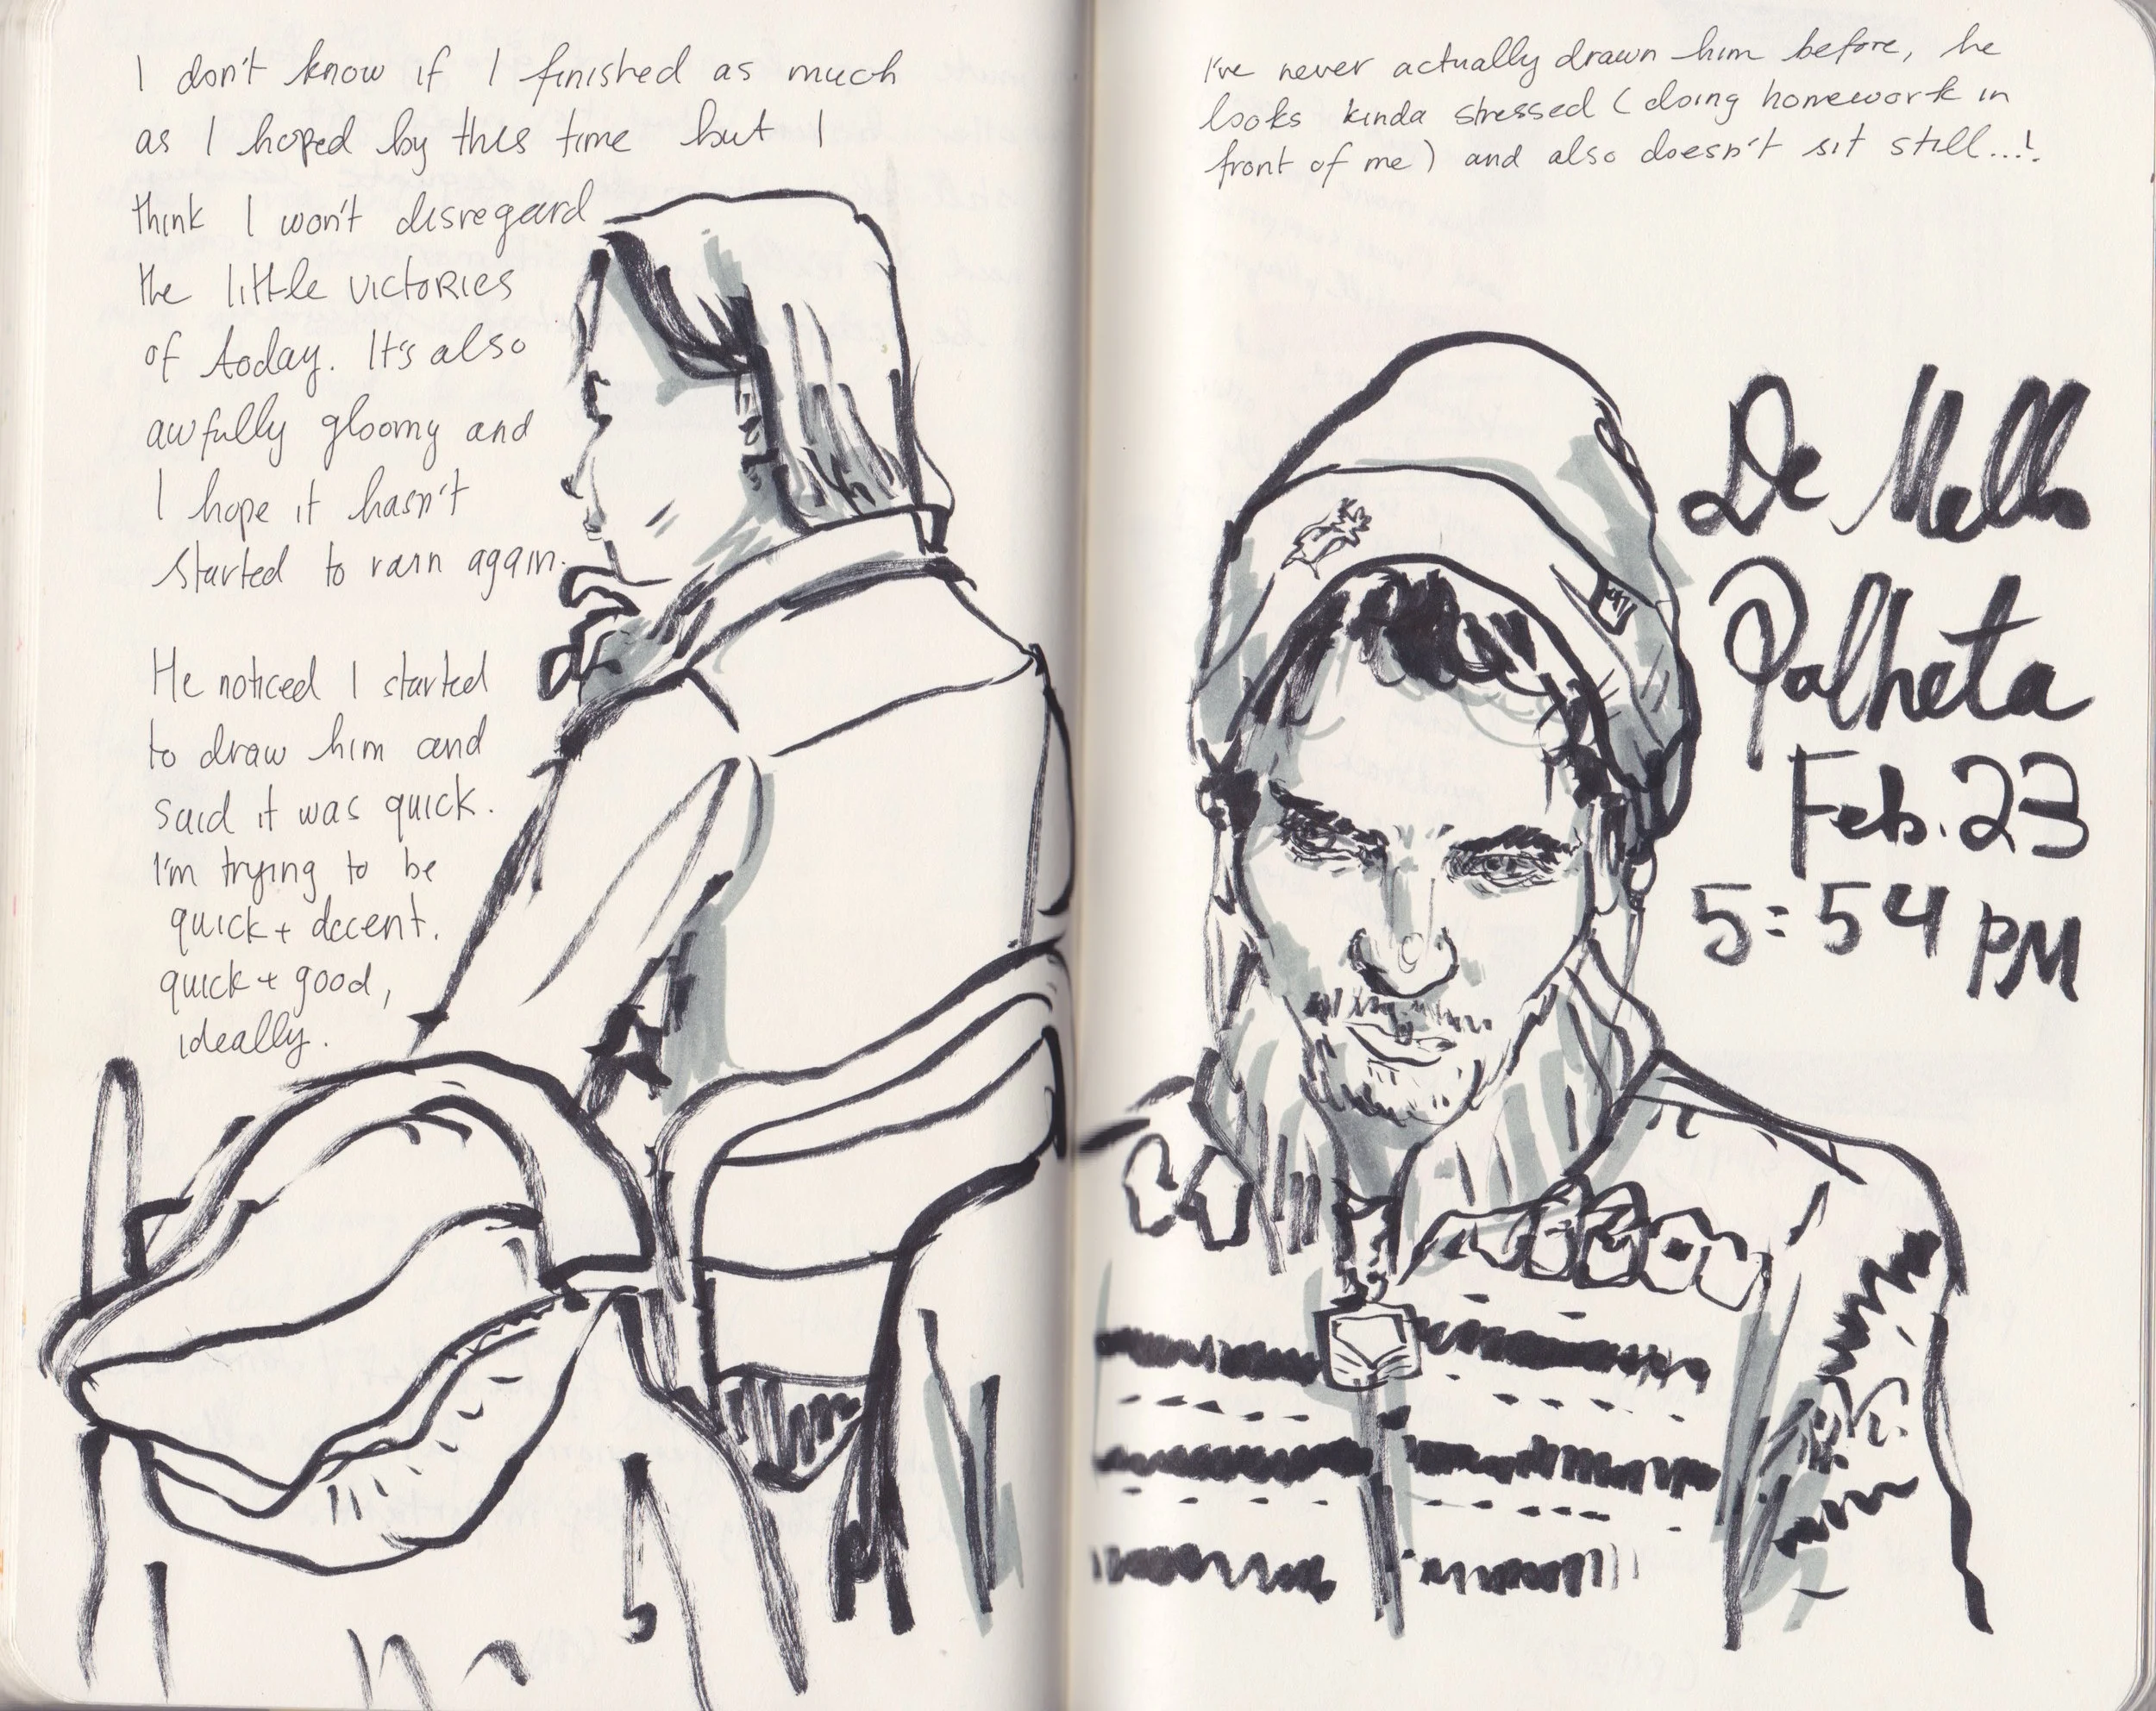 I don't know if I finished as much
as I hoped by this time but I
think I won't disregard
the little victories
of today. It's also
awfully gloomy and
I hope it hasn't
started to rain again.
He noticed I started
to draw him and
said it was quick.
I'm trying to be
quick + decent.
quick + good,
ideally.
I've never actually drawn him before, he
looks kinda stressed (doing homework in
front of me) and also doesn't sit still...!
De Mello
Palheta
Feb. 23
5:54 PM